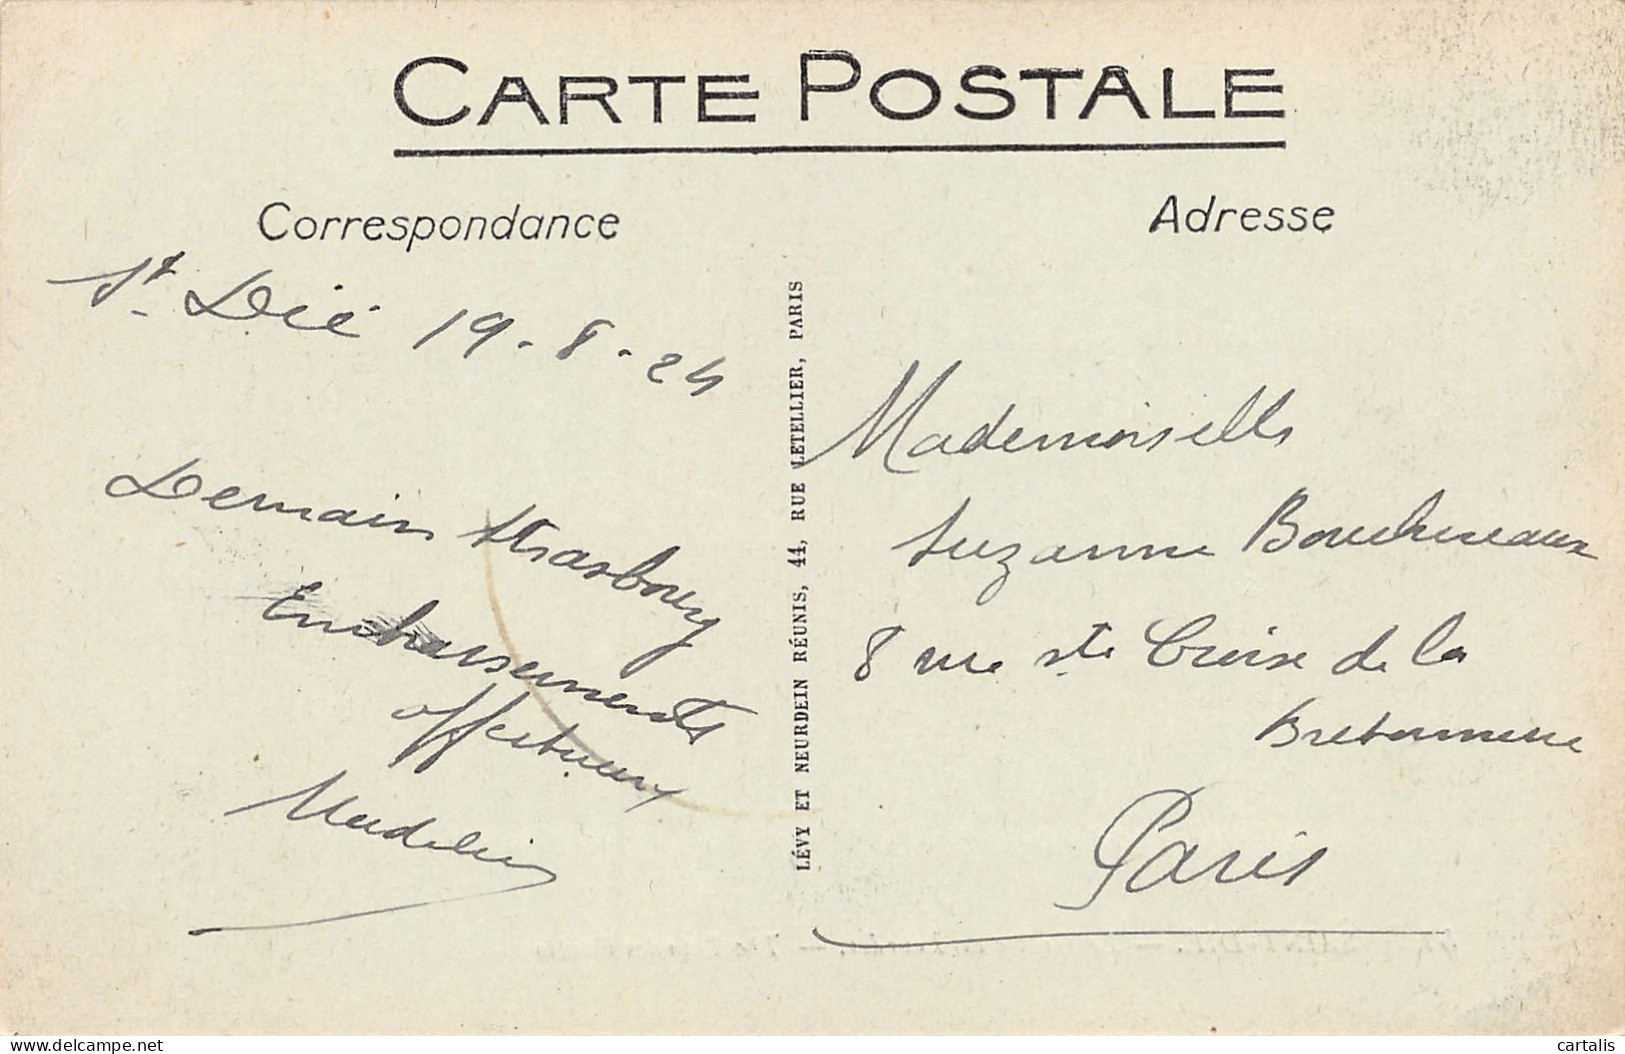 CARTE POSTALE
Correspondance
St. Dié 19-8-24
Demain Strasbourg
affectueux
Madeleine
LÉVY ET NEURDEIN RÉUNIS, 44, RUE LETELLIER, PARIS
Adresse
Mademoiselle
Suzanne
8 rue Ste Croix de la
Bretonnerie
Paris
cartalis